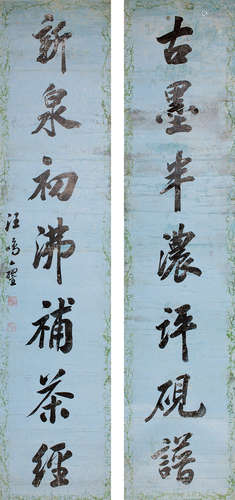 古墨半濃評硯譜
新泉初沸補茶經
汪鳴鑾